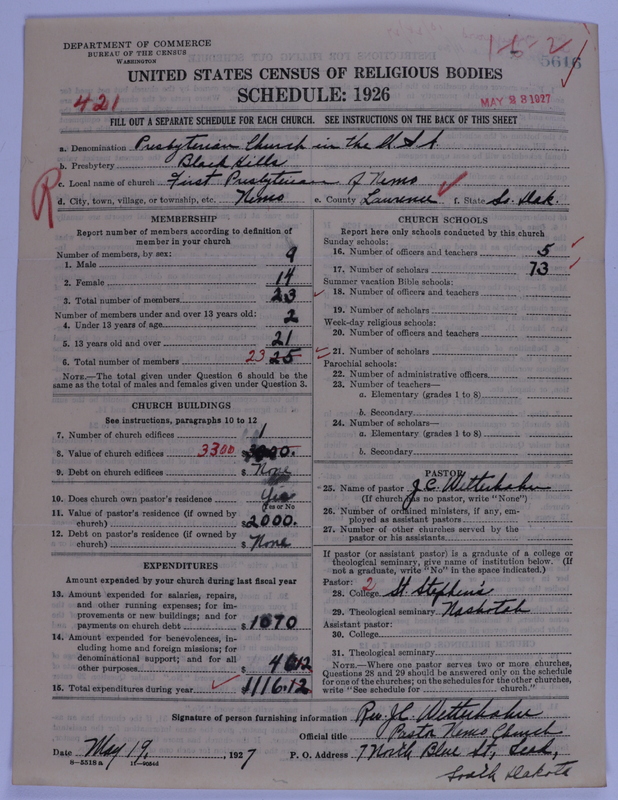 DEPARTMENT OF COMMERCE
BUREAU OF THE CENSUS
WASHINGTON
5616
UNITED STATES CENSUS OF RELIGIOUS BODIES
SCHEDULE: 1926
421
MAY 28 1927
FILL OUT A SEPARATE SCHEDULE FOR EACH CHURCH. SEE INSTRUCTIONS ON THE BACK OF THIS SHEET
a. Denomination Presbyterian Church in the U.S.A.
b. Presbytery Black Hills
c. Local name of church First Presbyterian of Nemo
R
d. City, town, village, or township, etc. Nemo e. County Lawrence f. State So. Dak.
MEMBERSHIP
Report number of members according to definition of
member in your church
Number of members, by sex:
1. Male 9
2. Female 14
3. Total number of members 23
Number of members under and over 13 years old:
4. Under 13 years of age 2
5. 13 years old and over 21
6. Total number of members 23 25
NOTE.—The total given under Question 6 should be
the same as the total of males and females given under Question 3.
CHURCH BUILDINGS
See instructions, paragraphs 10 to 12
7. Number of church edifices 1
8. Value of church edifices 3300 $
9. Debt on church edifices $ None
10. Does church own pastor's residence Yes
(Yes or No)
11. Value of pastor's residence (if owned by
church) $2000.
12. Debt on pastor's residence (if owned by
church) $ None
EXPENDITURES
Amount expended by your church during last fiscal year
13. Amount expended for salaries, repairs,
and other running expenses; for im-
provements or new buildings; and for
payments on church debt $1070
14. Amount expended for benevolences, in-
cluding home and foreign missions; for
denominational support; and for all
other purposes $ 46.12
15. Total expenditures during year $1116.12
CHURCH SCHOOLS
Report here only schools conducted by this church
Sunday schools:
16. Number of officers and teachers 5
17. Number of scholars 73
Summer vacation Bible schools:
18. Number of officers and teachers
19. Number of scholars
Week-day religious schools:
20. Number of officers and teachers
21. Number of scholars
Parochial schools:
22. Number of administrative officers
23. Number of teachers—
a. Elementary (grades 1 to 8)
b. Secondary
24. Number of scholars—
a. Elementary (grades 1 to 8)
b. Secondary
PASTOR
25. Name of pastor J.C. Wetterhahn
(If church has no pastor, write "None")
26. Number of ordained ministers, if any, em-
ployed as assistant pastors
27. Number of other churches served by the
pastor or his assistants
If pastor (or assistant pastor) is a graduate of a college or
theological seminary, give name of institution below. (If
not a graduate, write "No" in the space indicated.)
Pastor: 2
28. College St. Stephen's
29. Theological seminary Nashotah
Assistant pastor:
30. College
31. Theological seminary
NOTE.—Where one pastor serves two or more churches,
Questions 28 and 29 should be answered only on the schedule
for one of the churches; on the schedules for the other churches,
write "See schedule for church."
Signature of person furnishing information Rev. J.C. Wetterhahn
Official title Pastor Nemo Church
Date May 19, 1927 P. O. Address 7 North Blue St., Lead,
South Dakota
8-5518a